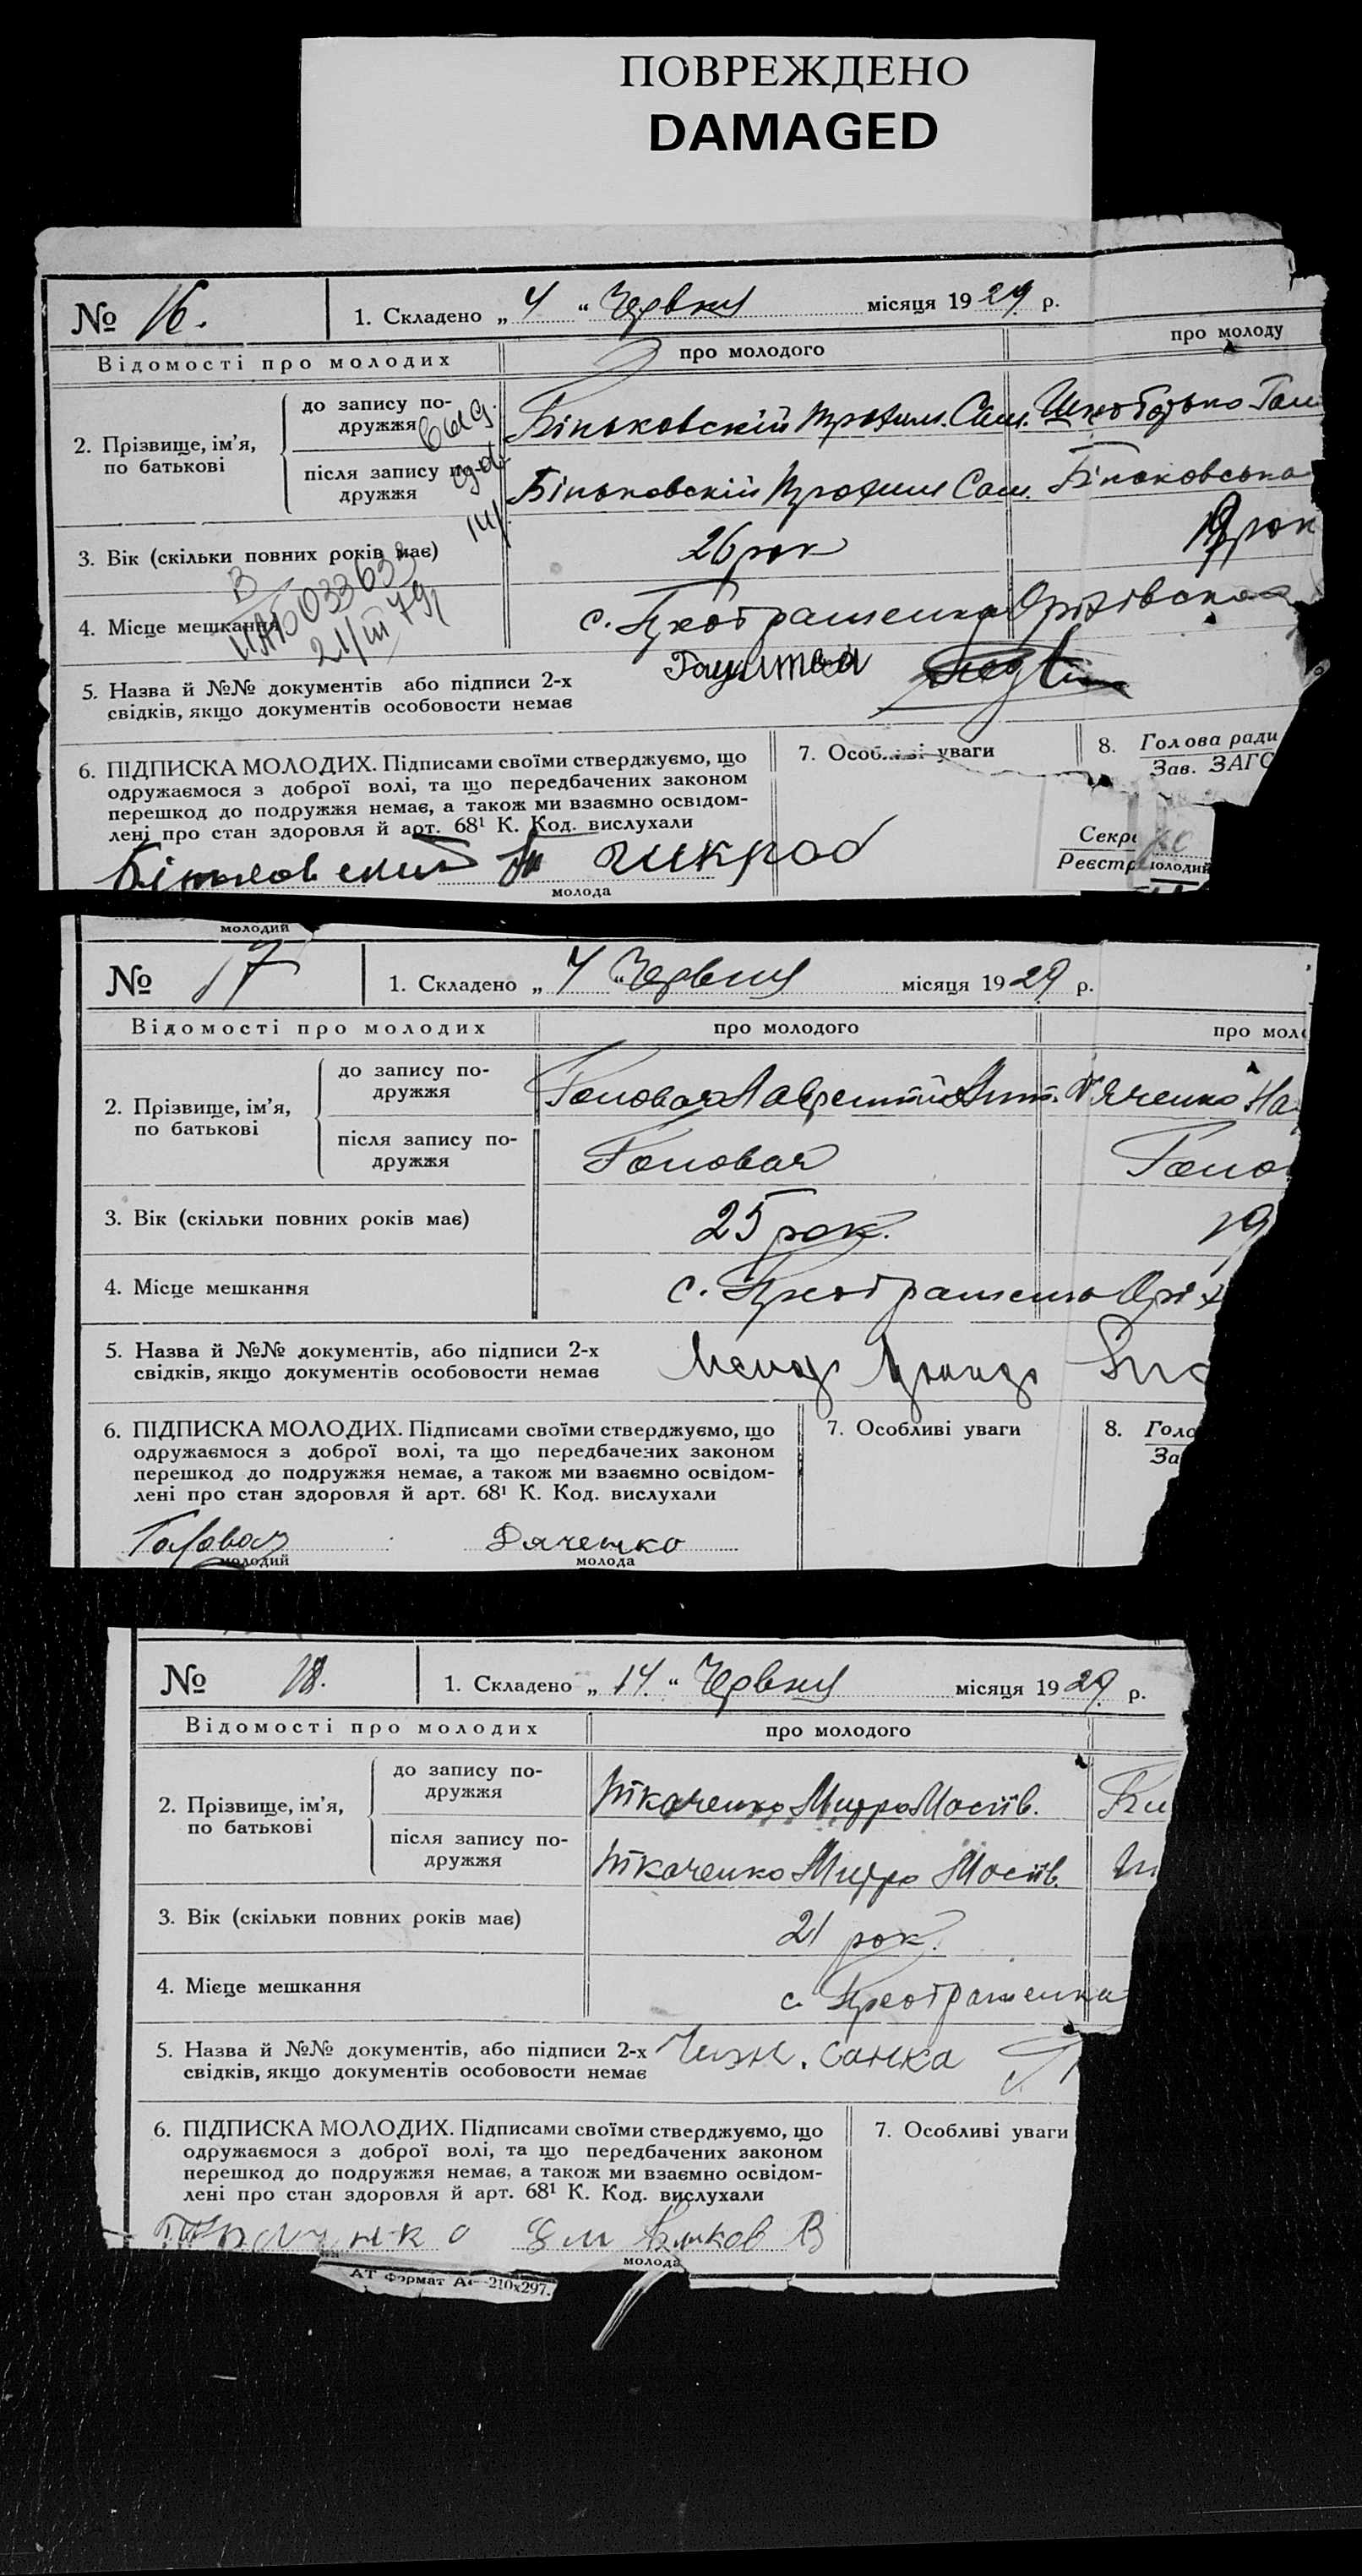 ПОВРЕЖДЕНО
DAMAGED
№ 16. 1. Складено „ 4 “ Червня місяця 1929 р.
Відомості про молодих про молодого про молоду
2. Прізвище, ім’я, по батькові
до запису подружжя Біньковскій Трохим. Сам.
після запису дружжя Біньковскій Трохим Сам. Біньковська
3. Вік (скільки повних років має) 26 рок 19 рок
4. Місце мешкання с.
033633
21/III 79
5. Назва й №№ документів або підписи 2-х
свідків, якщо документів особовости немає
6. ПІДПИСКА МОЛОДИХ. Підписами своїми стверджуємо, що
одружаємося з доброї волі, та що передбачених законом
перешкод до подружжя немає, а також ми взаємно освідом-
лені про стан здоровля й арт. 68¹ К. Код. вислухали
7. Особ... уваги
8. Голова ради
Зав. ЗАГС
Секр
Реєстр
молодий
молода
молодий
№ 17 1. Складено „ 4 “ Червня місяця 1929 р.
Відомості про молодих про молодого про мол
2. Прізвище, ім’я,
по батькові
до запису по-
дружжя Головач Лаврентій Ант. Дяченко На
після запису по-
дружжя Головач Голо
3. Вік (скільки повних років має) 25 рок. 19
4. Місце мешкання с.
5. Назва й №№ документів, або підписи 2-х
свідків, якщо документів особовости немає
6. ПІДПИСКА МОЛОДИХ. Підписами своїми стверджуємо, що
одружаємося з доброї волі, та що передбачених законом
перешкод до подружжя немає, а також ми взаємно освідом-
лені про стан здоровля й арт. 68¹ К. Код. вислухали
7. Особливі уваги
8. Голо
За
Головач Дяченко
молодий молода
№ 18. 1. Складено „ 14. “ Червня місяця 1929. р.
Відомості про молодих про молодого
2. Прізвище, ім’я,
по батькові
до запису по-
дружжя Ткаченко Митро Мосіїв.
після запису по-
дружжя Ткаченко Митро Мосіїв.
3. Вік (скільки повних років має) 21 рок.
4. Місце мешкання с.
5. Назва й №№ документів, або підписи 2-х
свідків, якщо документів особовости немає
6. ПІДПИСКА МОЛОДИХ. Підписами своїми стверджуємо, що
одружаємося з доброї волі, та що передбачених законом
перешкод до подружжя немає, а також ми взаємно освідом-
лені про стан здоровля й арт. 68¹ К. Код. вислухали
7. Особливі уваги
молода
АТ Формат А4—210х297.